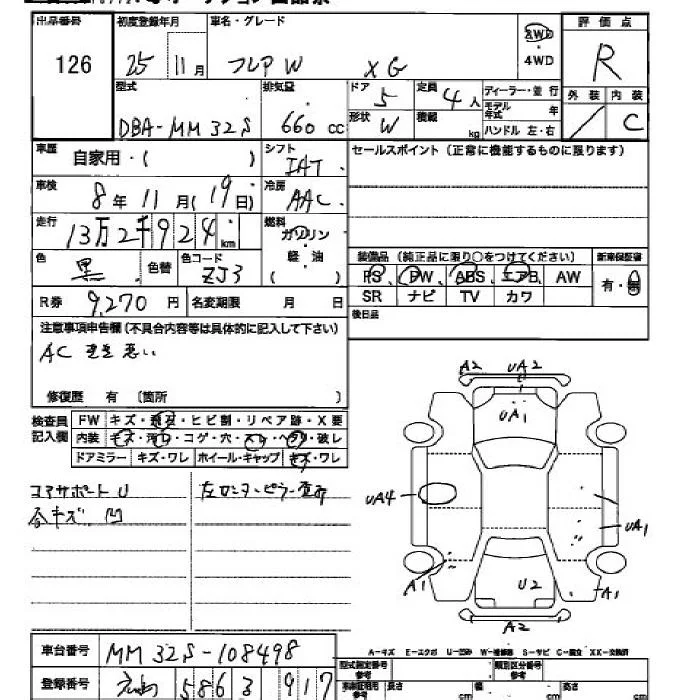 出品番号 初度登録年月 車名・グレード 評価点
126 25 11月 フレアW XG 2WD・4WD R
型式 排気量 ドア 5 定員 4人 ディーラー・並行 外装 内装
DBA-MM32S 660cc 形状 W 積載 kg モデル年式 年 ハンドル 左・右 / C
車歴 自家用・( ) シフト IAT セールスポイント(正常に機能するものに限ります)
車検 8年11月(19日) 冷房 AAC
走行 13万2千924km 燃料 ガソリン
色 黒 色替 色コード ZJ3 軽・油 ( ) 装備品(純正品に限り○をつけてください) 新車保証書
PS PW ABS エアB AW 有・無
R券 9,270円 名変期限 月 日 SR ナビ TV カワ
注意事項申告欄(不具合内容等は具体的に記入して下さい) 後日品
AC 悪い
修復歴 有 〔箇所 〕
検査員記入欄 FW キズ・飛石・ヒビ割・リペア跡・X要
内装 キズ・汚レ・コゲ・穴・スレ・ヘタリ・破レ
ドアミラー キズ・ワレ ホイール・キャップ キズ・ワレ
コアサポートU 左センターピラー
各キズ 凹
A2 UA2
UA1
UA4
UA1
A1 U2 A1
A2
A-キズ E-エクボ U-凹み W-補修跡 S-サビ C-腐食 XX-交換済
車台番号 MM32S-108498 型式指定番号 参考 類別区分番号 参考
登録番号 586 3 917 車庫証明用 参考 長さ cm 幅 cm 高さ cm